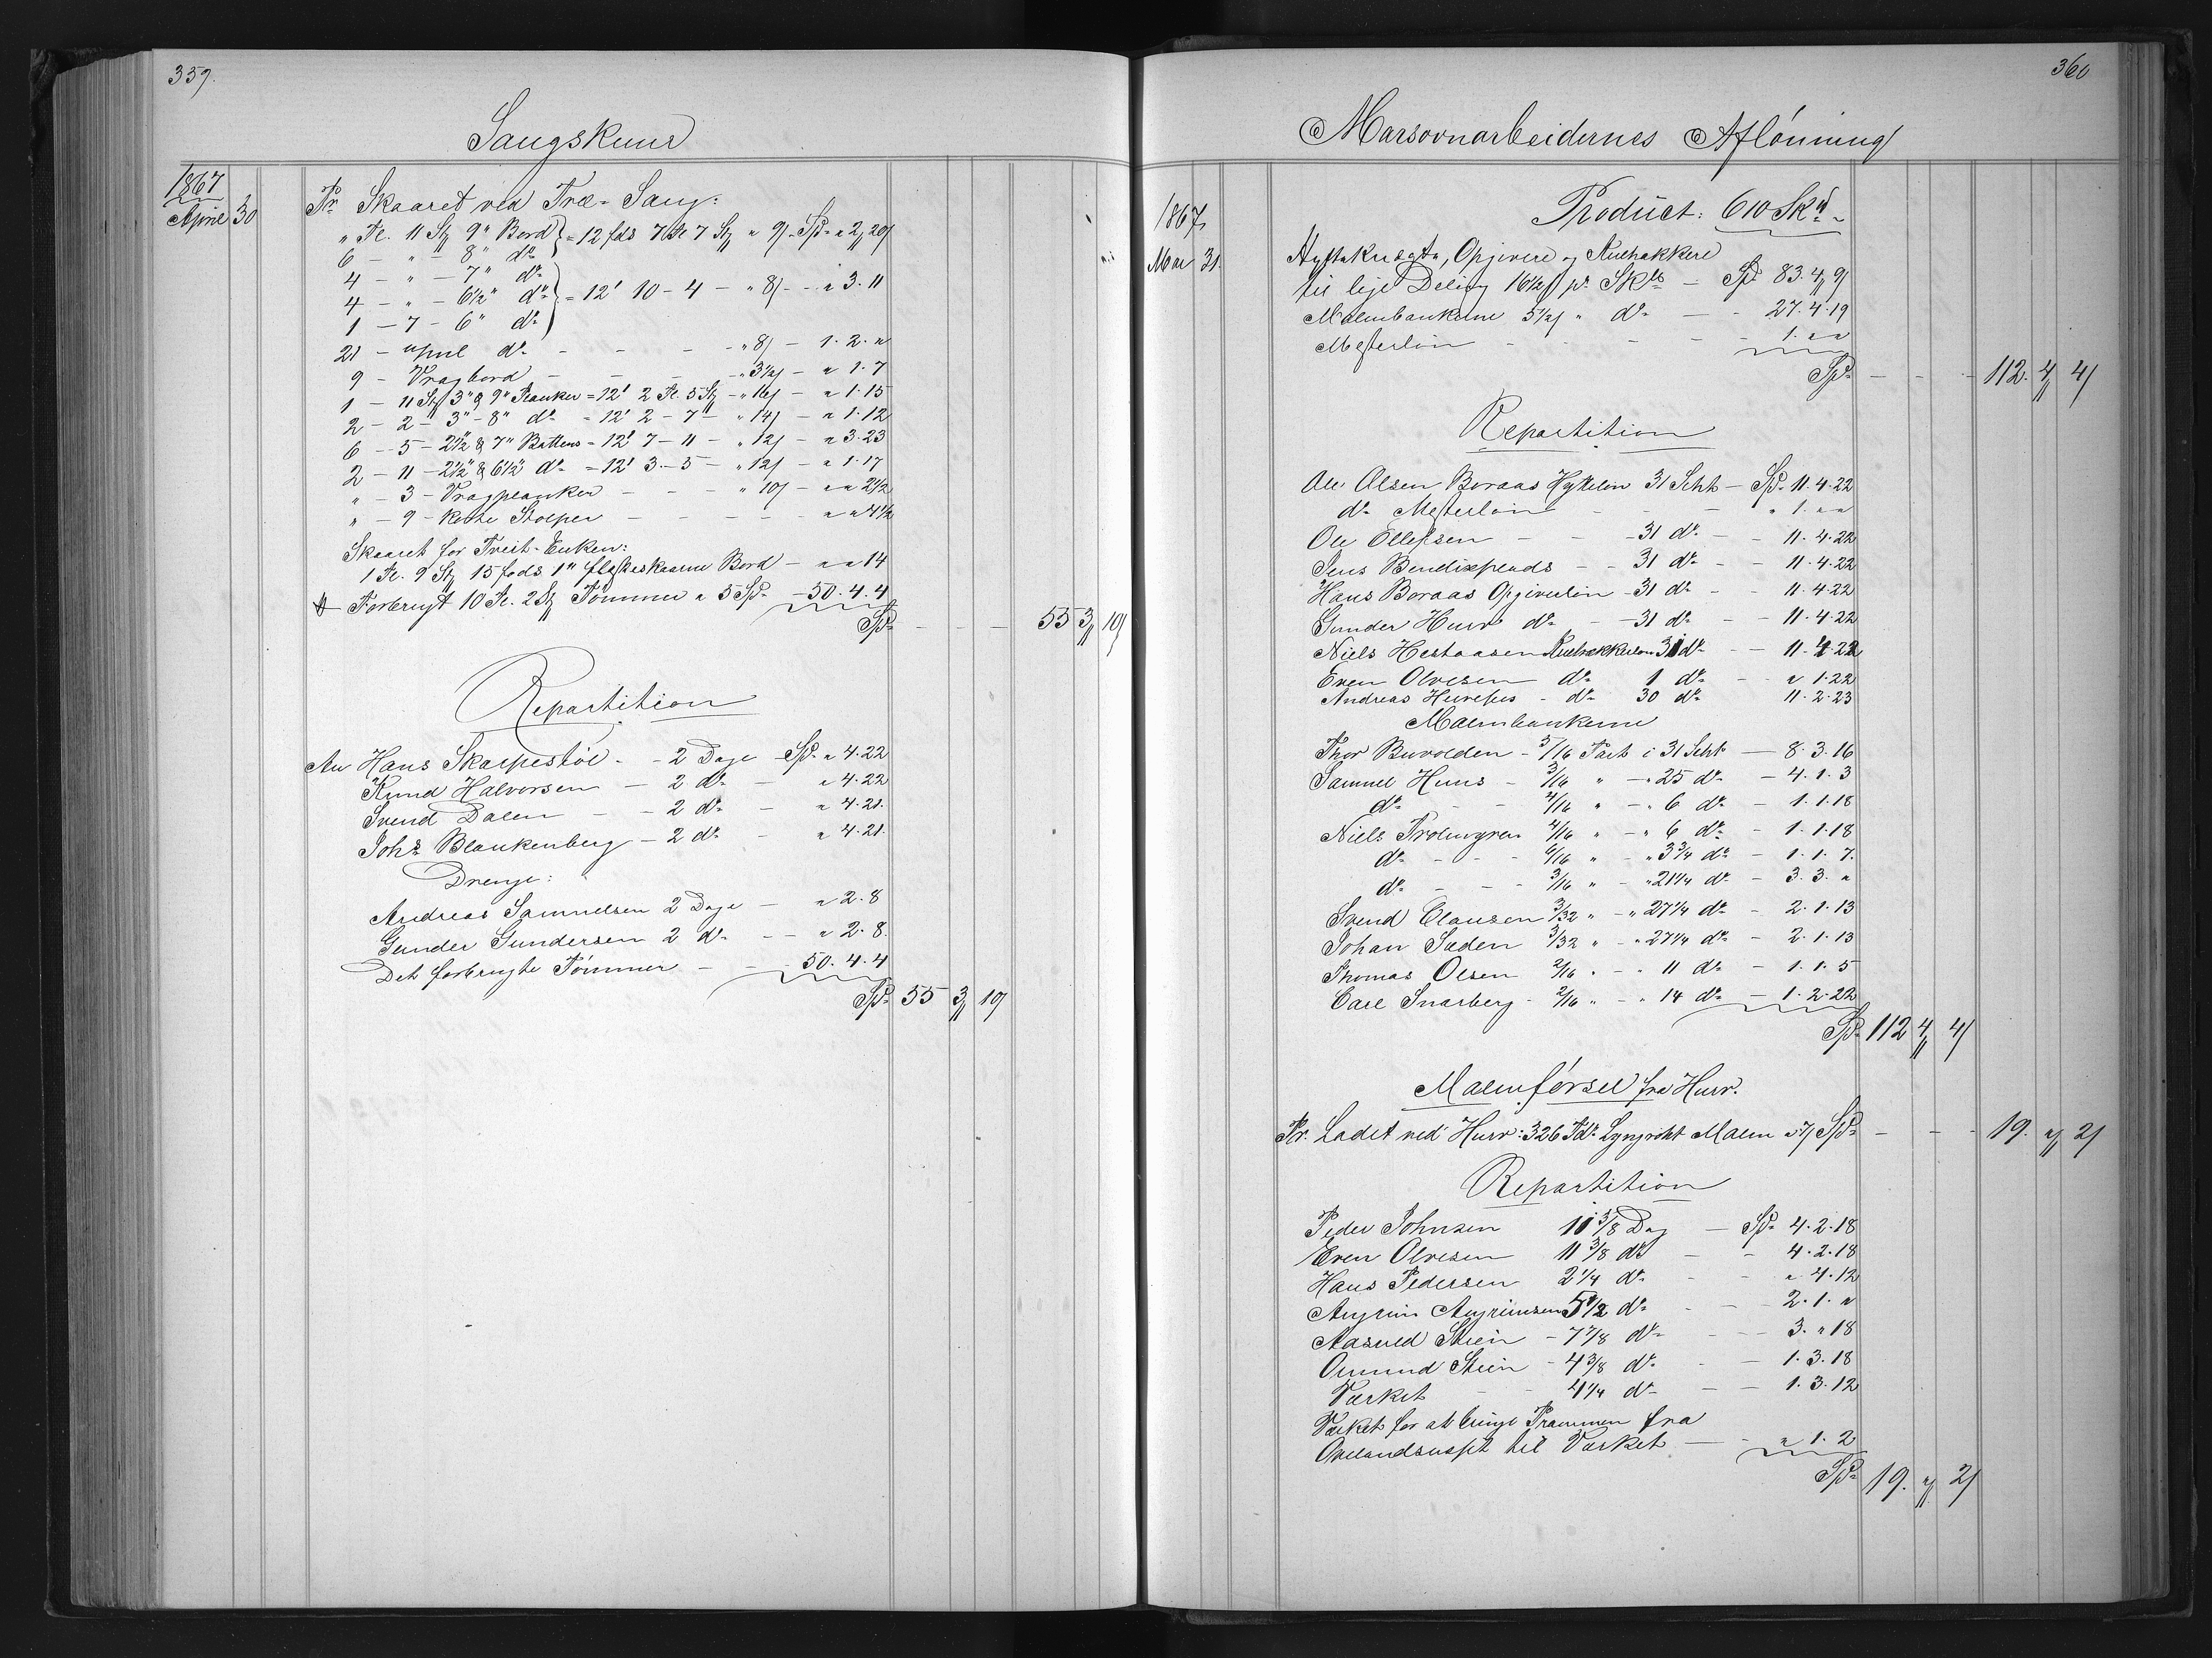 359.
Saugskuur
1867
April 30
Pr Skaaret ved Træ-Saug:
" Tl. 11 St 9" Bord } = 12 fods 7 Tl 7 St " 9/ - Spd " 2 20/
6 - " - 8" do
4 - " - 7" do
4 - " - 6½" do } = 12' 10 - 4 - " 8/ - " 3. 11
1 - 7 - 6" do
21 - do - - - " 8/ - 1. 2. "
9 - Vragbord - - - " 3½/ - " 1. 7
1 - 11 St 3" & 9" Planker = 12' 2 Tl. 5 St - " 16/ - " 1. 15
2 - 2 - 3" - 8" do = 12' 2 - 7 - " 14/ - " 1. 12
6 - 5 - 2½" & 7" Battens = 12' 7 - 11 - " 12/ - " 3. 23
2 - 11 - 2½" & 6½" do = 12' 3 - 5 - " 12/ - " 1. 17
" - 3 - Vragplanker - - - " 10/ - " " 2½
" - 9 - korte Stolper - - - - " " 4½
Skaaret for Treit-Enken:
1 Tl. 9 St 15 fods 1" Bord - " " 14
Forbrugt 10 Tl. 2 St Tømmer a 5 Spd - 50. 4. 4
Spd - - - 55 3 10/
Repartition
Av Hans Skarpestøl - - 2 Dage Spd " 4. 22
Knud Halvorsen - 2 do - " 4. 22
Svend Dalen - - 2 do - " 4. 21.
Johs Blankenberg - 2 do - " 4. 21.
Drenge:
Andreas Samuelsen 2 Dage - " 2. 8
Gunder Gundersen 2 do - - " 2. 8.
Det forbrugte Tømmer - - - 50. 4. 4
Spd 55 3 10/
360
Marsovnarbeidernes Aflønning
1867
Mar 31.
Product: 610 Sk℔
Hytteknægte, Opgivere og
til lige Deling 16½/ pr Sk℔ - Spd 83. 4 9/
Malmbankerne 5½/ " do - - 27. 4. 19
Mesterløn - - - - - 1. " "
Spd - - - 112. 4 4/
Repartition
Ole Olsen Boraas Hytteløn 31 Scht - Spd 11. 4. 22
do Mesterløn - - - " 1. " "
Ole Ellefsen - - - 31 do - - 11. 4. 22
Jens Bendixplads - - 31 do - - 11. 4. 22
Hans Boraas Opgiverløn - 31 do - - 11. 4. 22
Gunder Huser do - - 31 do - - 11. 4. 22
Niels Hestaasen 31 do - - 11. 4. 22
Even Olvesen do 1 do - - " 1. 22
Andreas - do 30 do 11. 2. 23
Malmbankerne
Thor Buvolden - 5/16 Part i 31 Scht - 8. 3. 16
Samuel Huus - 3/16 " - " 25 do - 4. 1. 3
do - - 4/16 " - " 6 do - 1. 1. 18
Niels 4/16 " - " 6 do - 1. 1. 18
do - - - 6/16 " - " 3¾ do - 1. 1. 7.
do - - - 3/16 " - " 21¼ do - 3. 3. "
Svend Clausen 3/32 " - " 27¼ do - 2. 1. 13
Johan Saden 3/32 " - " 27¼ do - 2. 1. 13
Thomas Olsen 2/16 " - " 11 do - 1. 1. 5
Carl Snarberg - 2/16 " - " 14 do - 1. 2. 22
Spd 112 4 4/
Malmførsel fra Husr.
Pr. Ladet ved Husr: 326 Tdr Malm a 7/ Spd - - - 19. " 2/
Repartition
Peder Johnsen 11 3/8 Dag - Spd 4. 2. 18
Even Olvesen 11 3/8 do - - 4. 2. 18
Hans Pedersen 2 1/4 do - - " 4. 12
5 1/2 do - - 2. 1. "
Aasuld Steen - 7 7/8 do - - 3. " 18
Omund Steen - 4 3/8 do - - 1. 3. 18
Værket - - 4 1/4 do - - 1. 3. 12
Værket for at bringe Prammen fra
til Værket - - " 1. 2
Spd 19. " 2/